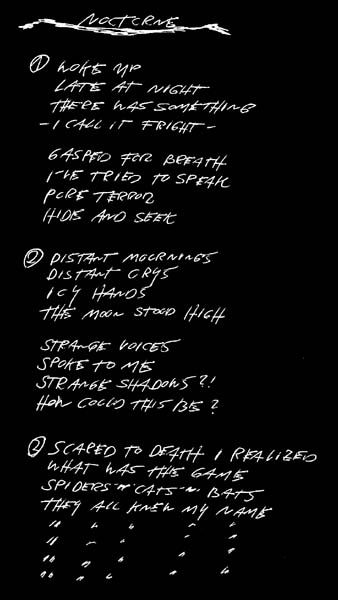 NOCTURNE
① WOKE UP
LATE AT NIGHT
THERE WAS SOMETHING
- I CALL IT FRIGHT -
GASPED FOR BREATH
I'VE TRIED TO SPEAK
PURE TERROR
HIDE AND SEEK
② DISTANT MOURNINGS
DISTANT CRYS
ICY HANDS
THE MOON STOOD HIGH
STRANGE VOICES
SPOKE TO ME
STRANGE SHADOWS?!
HOW COULD THIS BE?
② SCARED TO DEATH I REALIZED
WHAT WAS THE GAME
SPIDERS "N" CATS "N" BATS
THEY ALL KNEW MY NAME
" " " " "
" " " " "
" " " " "
" " " " "